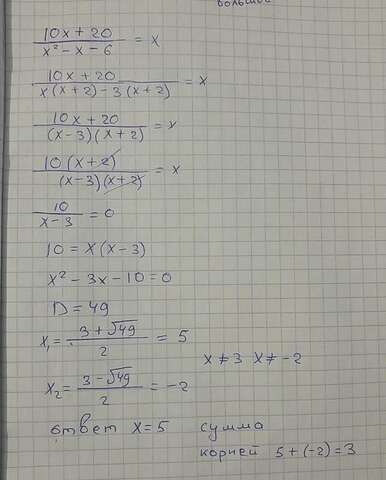 большой
10x + 20 / x² - x - 6 = x
10x + 20 / x(x+2) - 3(x+2) = x
10x + 20 / (x-3)(x+2) = x
10(x+2) / (x-3)(x+2) = x
10 / x-3 = 0
10 = x(x-3)
x² - 3x - 10 = 0
D = 49
x₁ = 3 + √49 / 2 = 5
x ≠ 3 x ≠ -2
x₂ = 3 - √49 / 2 = -2
ответ x = 5 сумма
корней 5 + (-2) = 3